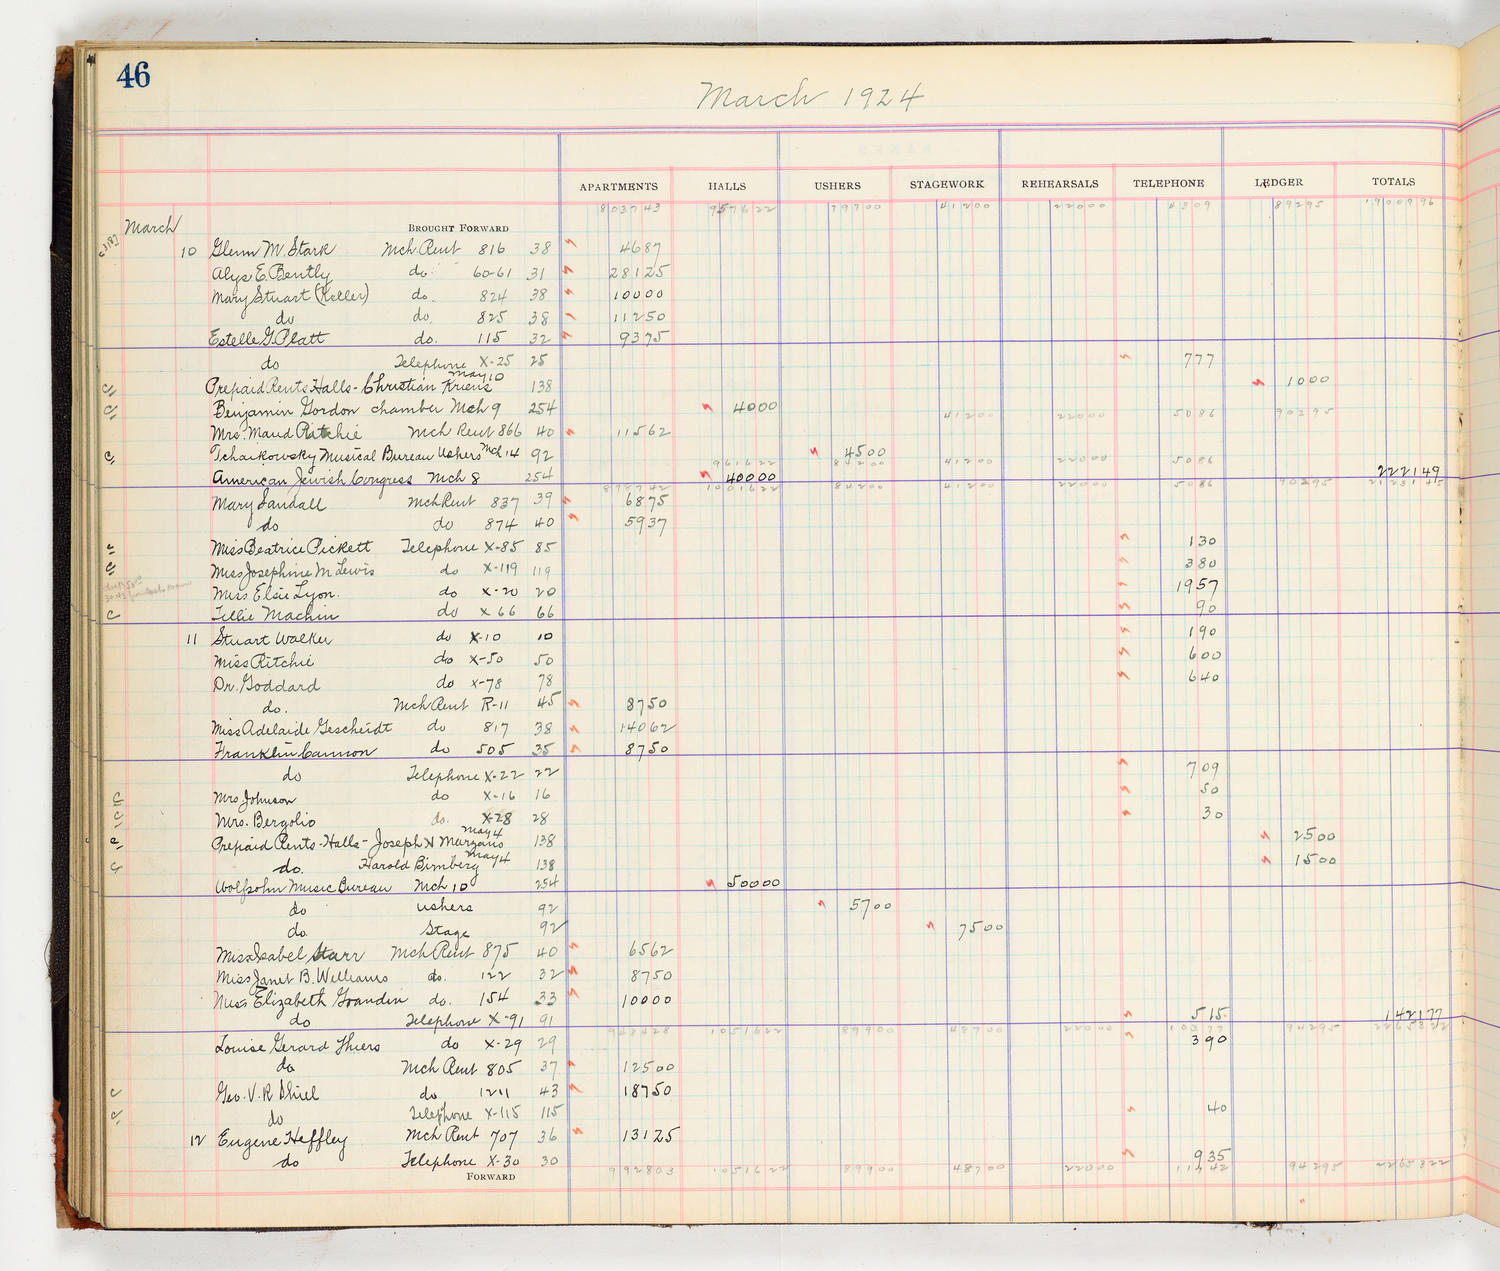 46
March 1924
APARTMENTS HALLS USHERS STAGEWORK REHEARSALS TELEPHONE LEDGER TOTALS
803743 957622 79700 41200 22000 4309 89295 1900996
March BROUGHT FORWARD
10 Glenn M. Stark Mch Rent 816 38 4687
Alys E. Bently do. 60-61 31 28125
Mary Stuart (Keller) do. 824 38 10000
do do. 825 38 11250
Estelle G. Platt do. 115 32 9375
do Telephone X-25 25 777
Prepaid Rents Halls - Christian Kriens May 10 138 1000
Benjamin Gordon chamber Mch 9 254 4000
41200 22000 5086 90295
Mrs. Maud Ritchie Mch Rent 866 40 11562
Tchaikowsky Musical Bureau Ushers Mch 14 92 4500
961622 84200 41200 22000 5086
American Jewish Congress Mch 8 254 40000 222149
1001622 84200 41200 22000 5086 90295
Mary Landall Mch Rent 837 39 6875
do do 874 40 5937
Miss Beatrice Pickett Telephone X-85 85 130
Miss Josephine M Lewis do X-119 119 380
Miss Elsie Lyon. do X-20 20 1957
Tillie Machin do X 66 66 90
11 Stuart Walker do X-10 10 190
Miss Ritchie do X-50 50 600
Dr. Goddard do X-78 78 640
do. Mch Rent R-11 45 8750
Miss Adelaide Gescheidt do 817 38 14062
Franklin Cannon do 505 35 8750
do Telephone X-22 22 709
Mrs Johnson do X-16 16 50
Mrs. Bergolio do. X-28 28 30
Prepaid Rents-Halls- Joseph N Murzans May 4 138 2500
do. Harold Birnberg May 4 138 1500
Wolfsohn Music Bureau Mch 10 254 50000
do ushers 92 5700
do. Stage 92 7500
Miss Isabel Starr Mch Rent 875 40 6562
Miss Janet B. Williams do. 122 32 8750
Miss Elizabeth Grandin do. 154 33 10000
do Telephone X-91 91 515 142177
948428 1051622 89900 48700 22000 10377 94295 2265322
Louise Gerard Thiers do X-29 29 390
do Mch Rent 805 37 12500
Geo. V. R Shiel do. 1211 43 18750
do Telephone X-115 115 40
12 Eugene Heffley Mch Rent 707 36 13125
do Telephone X-30 30 935
992803 1051622 89900 48700 22000 11742 94295 2265322
FORWARD